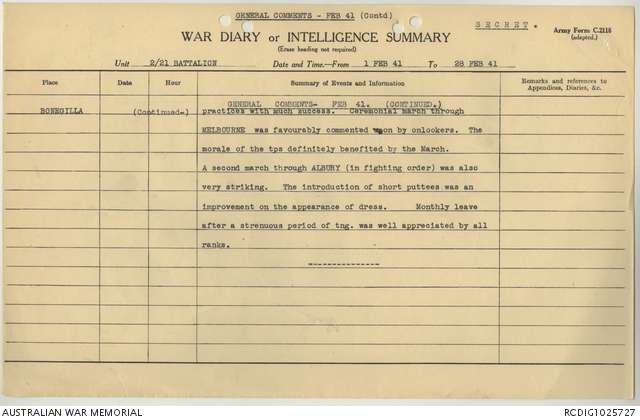 GENERAL COMMENTS - FEB 41 (Contd)
SECRET.
Army Form C.2118
(adapted.)
WAR DIARY or INTELLIGENCE SUMMARY
(Erase heading not required)
Unit 2/21 BATTALION Date and Time.—From 1 FEB 41 To 28 FEB 41
Place Date Hour Summary of Events and Information Remarks and references to
Appendices, Diaries, &c.
GENERAL COMMENTS- FEB 41. (CONTINUED.)
BONEGILLA (Continued-) practices with much success. Ceremonial march through
MELBOURNE was favourably commented upon by onlookers. The
morale of the tps definitely benefited by the March.
A second march through ALBURY (in fighting order) was also
very striking. The introduction of short puttees was an
improvement on the appearance of dress. Monthly leave
after a strenuous period of tng. was well appreciated by all
ranks.
---------------
AUSTRALIAN WAR MEMORIAL RCDIG1025727